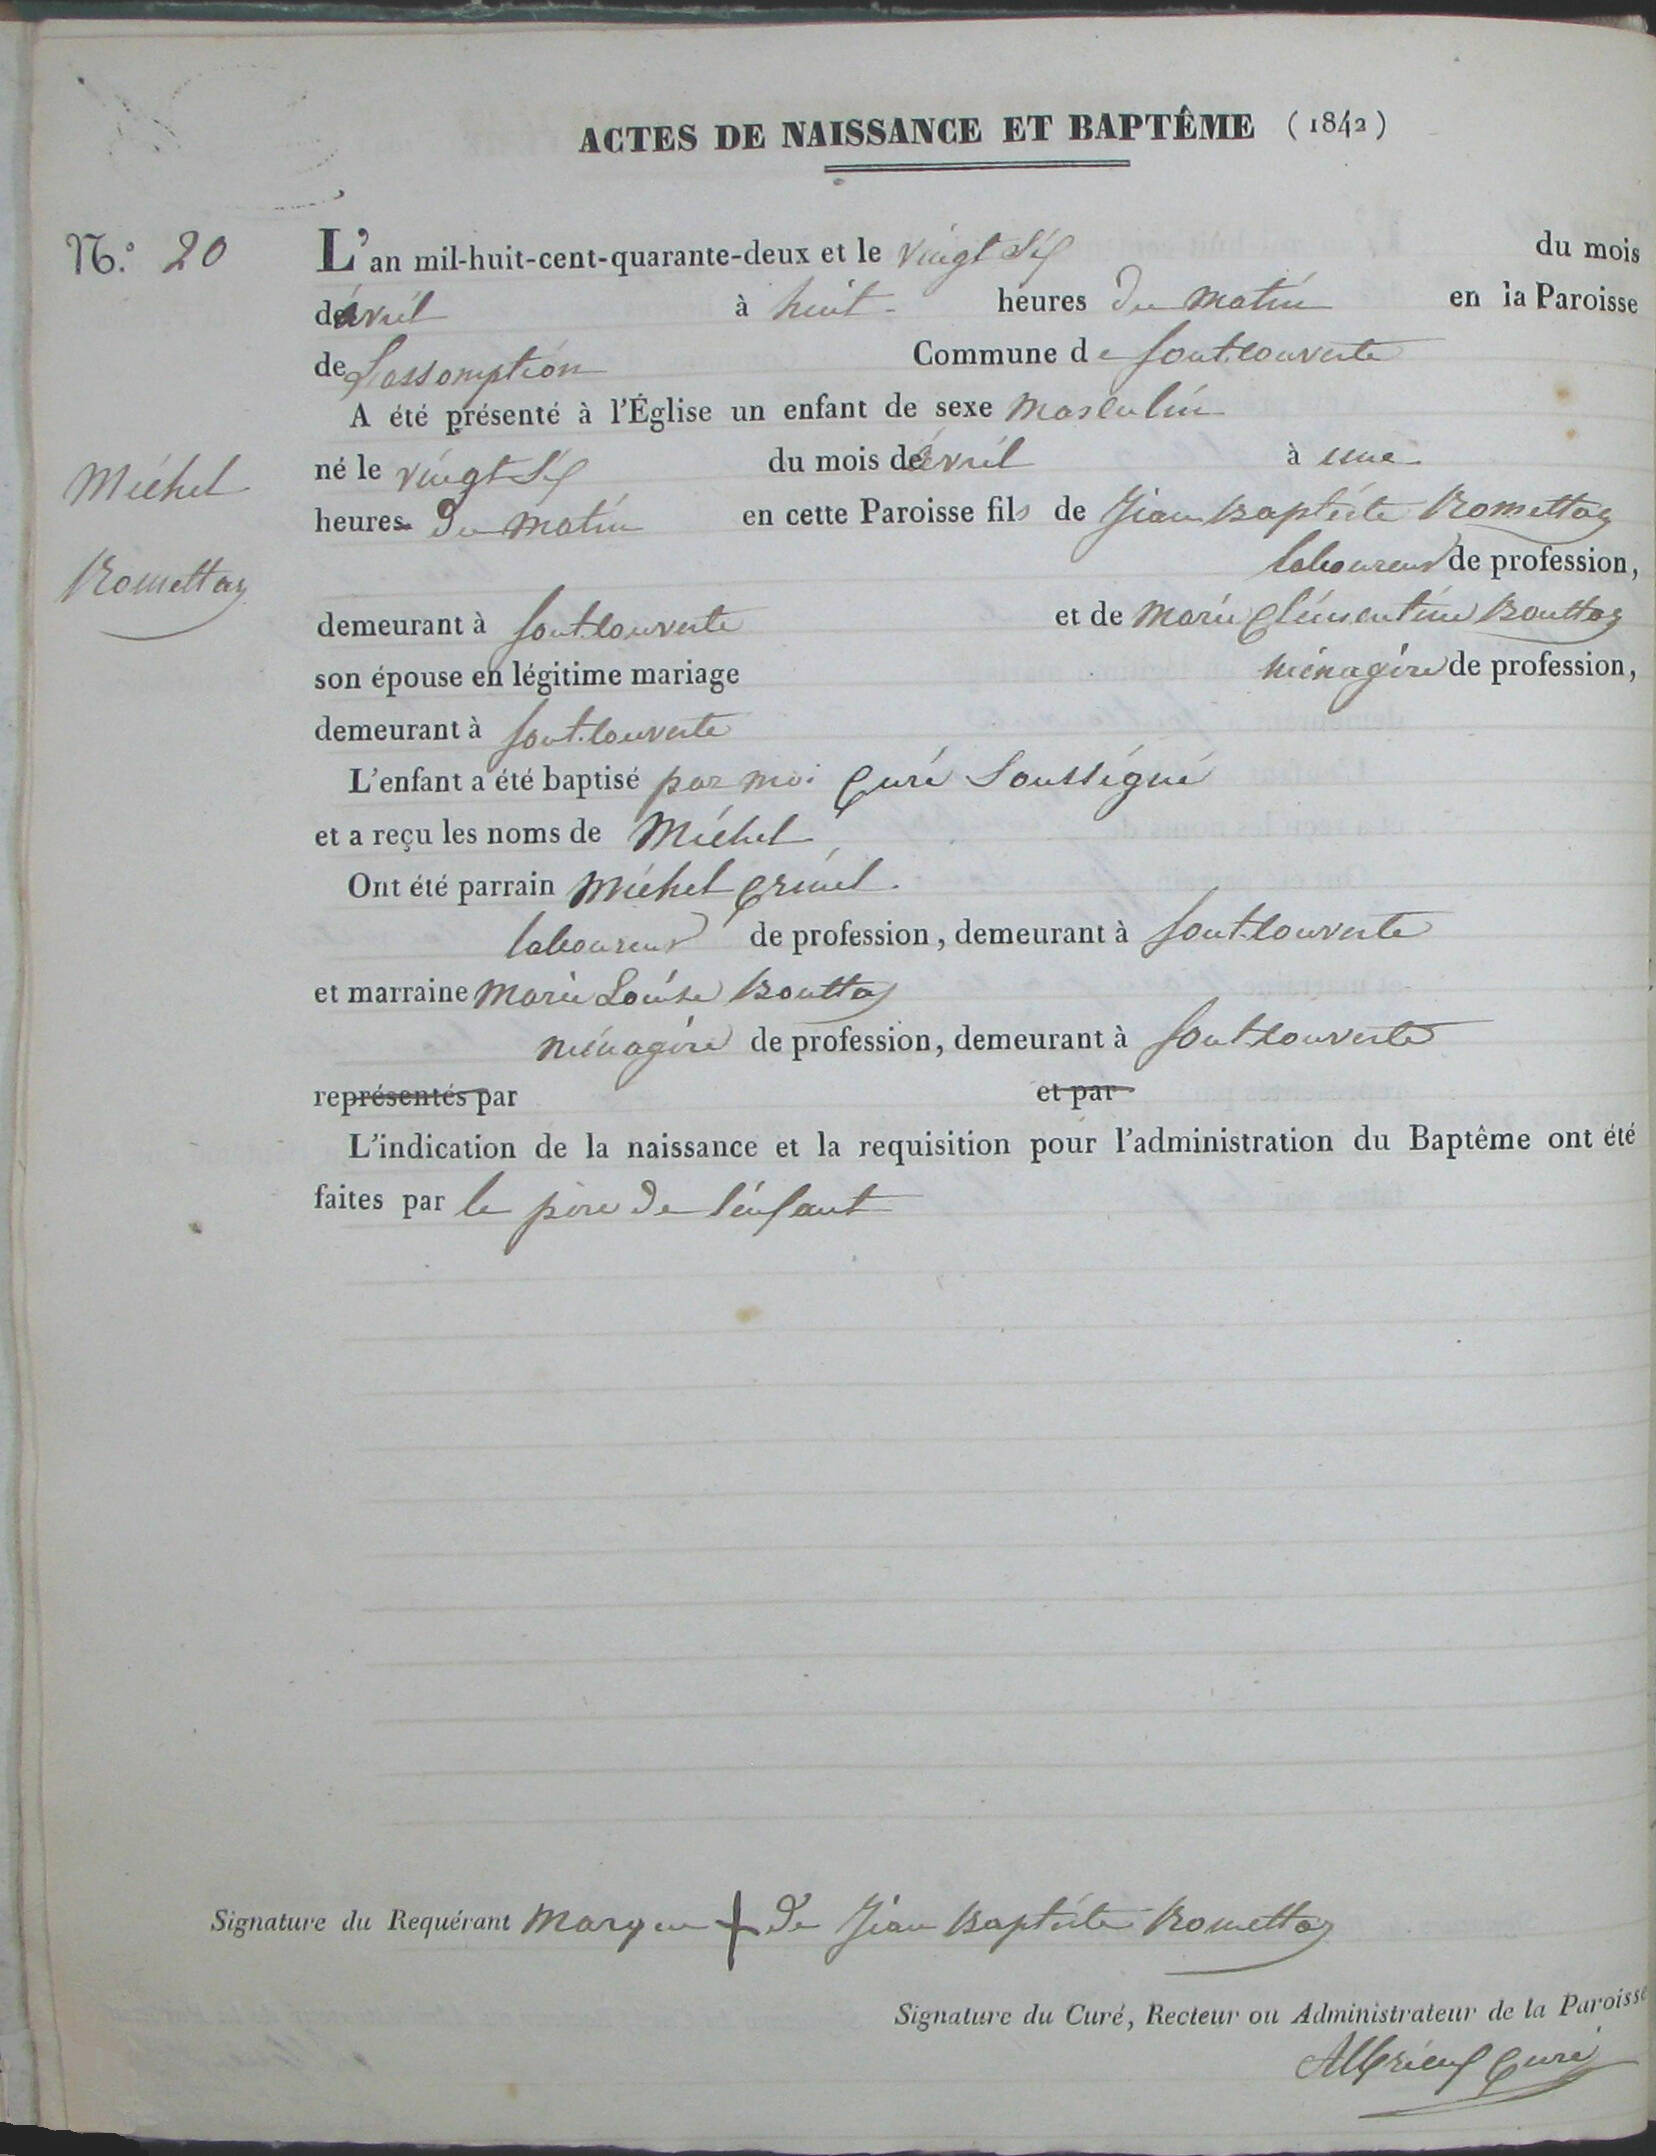 ACTES DE NAISSANCE ET BAPTÊME (1842)
N.° 20
L'an mil-huit-cent-quarante-deux et le vingt Six du mois
de avril à huit heures du matin en la Paroisse
de Lassomption Commune de fontcouverte
A été présenté à l'Église un enfant de sexe masculin
né le vingt Six du mois de avril à une
Michel
heures du matin en cette Paroisse fils de Jean Baptiste Romettaz
Romettaz
laboureur de profession,
demeurant à fontcouverte et de marie Clémentine Bouttaz
son épouse en légitime mariage ménagère de profession,
demeurant à fontcouverte
L'enfant a été baptisé par moi Curé Soussigné
et a reçu les noms de Michel
Ont été parrain Michel
laboureur de profession, demeurant à fontcouverte
et marraine marie Louise Bouttaz
ménagère de profession, demeurant à fontcouverte
représentés par et par
L'indication de la naissance et la requisition pour l'administration du Baptême ont été
faites par le père de l'enfant
Signature du Requérant marque + de Jean Baptiste Romettaz
Signature du Curé, Recteur ou Administrateur de la Paroisse
Curé